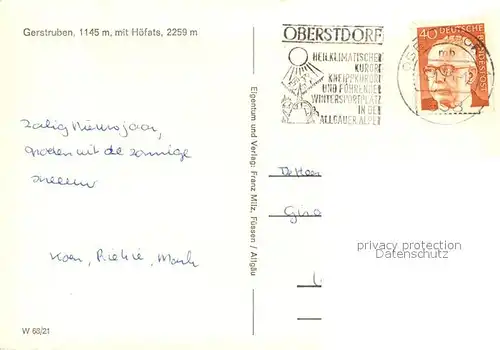 Gerstruben, 1145 m, mit Höfats, 2259 m
OBERSTDORF
HEILKLIMATISCHER
KURORT
KNEIPPKURORT
UND FÜHRENDER
WINTERSPORTPLATZ
IN DER
ALLGÄUER ALPEN
40
DEUTSCHE
BUNDESPOST
mb
12
Zalig Nieuwjaar,
groeten uit de zonnige
sneeuw
Koen, Riekie, Mark
Eigentum und Verlag: Franz Milz, Füssen / Allgäu
privacy protection
© AnsichtskartenHandel.de
W 63/21